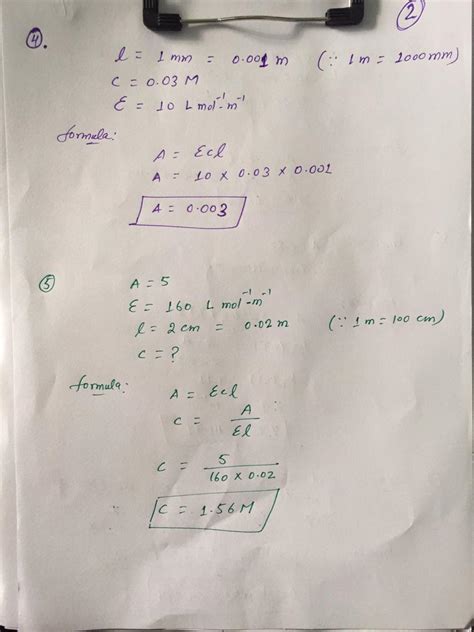 2
4.
l = 1 mm = 0.001 m (∵ 1 m = 1000 mm)
C = 0.03 M
Ɛ = 10 L mol⁻¹-m⁻¹
formula:
A = Ɛcl
A = 10 × 0.03 × 0.001
A = 0.003
5
A = 5
Ɛ = 160 L mol⁻¹-m⁻¹
l = 2 cm = 0.02 m (∵ 1 m = 100 cm)
C = ?
formula:
A = Ɛcl
C = A / Ɛl
C = 5 / 160 × 0.02
C = 1.56 M